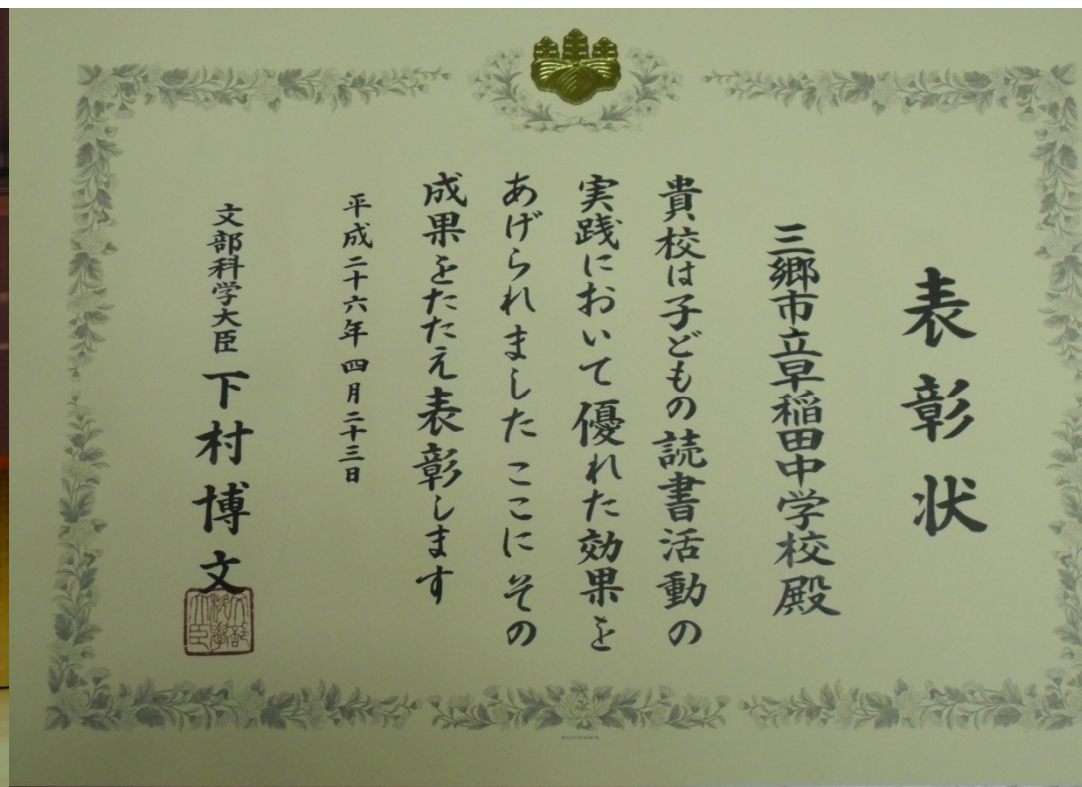 表彰状
三郷市立早稲田中学校殿
貴校は子どもの読書活動の
実践において優れた効果を
あげられました ここにその
成果をたたえ表彰します
平成二十六年四月二十三日
文部科学大臣 下村博文